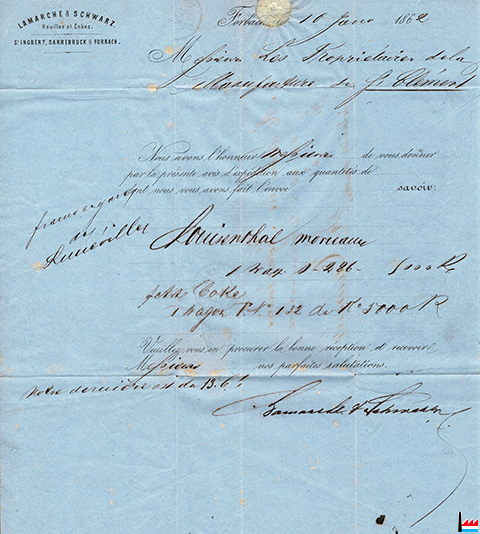 LAMARCHE & SCHWARZ.
Houilles et Cokes.
ST INGBERT, SARREBRUCK & FORBACH.
Forbach, 16 1862
Messieurs Les Propriétaires de la
Manufacture de St Clément
Nous avons l'honneur Messieurs de vous donner
par la présente avis d'expédition aux quantités de
dont nous vous avons fait l'envoi savoir:
franco en gare
de
Lunéville
Louisenthal morceaux
1 Wag 5000 K
Coke
1 Wagon N° 132 de K° 5000 K
Veuillez vous en procurer la bonne réception et recevoir
Messieurs nos parfaites salutations.
Notre dernière est du 13.
Lamarche & Schwarz